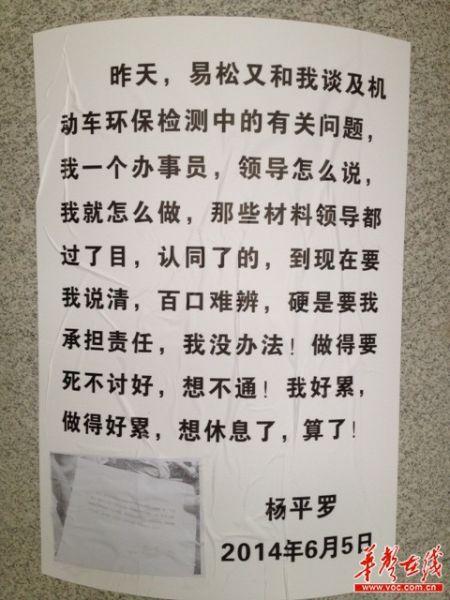 昨天，易松又和我谈及机
动车环保检测中的有关问题，
我一个办事员，领导怎么说，
我就怎么做，那些材料领导都
过了目，认同了的，到现在要
我说清，百口难辨，硬是要我
承担责任，我没办法！做得要
死不讨好，想不通！我好累，
做得好累，想休息了，算了！
杨平罗
2014年6月5日
华声在线
www.voc.com.cn